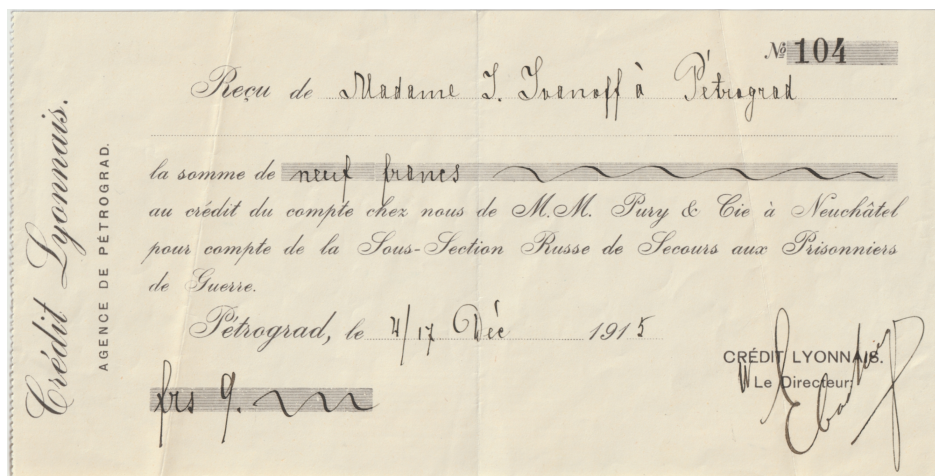 Crédit Lyonnais.
AGENCE DE PÉTROGRAD.
№ 104
Reçu de Madame J. Ivanoff à Pétrograd
la somme de neuf francs
au crédit du compte chez nous de M.M. Pury & Cie à Neuchâtel
pour compte de la Sous-Section Russe de Secours aux Prisonniers
de Guerre.
Pétrograd, le 4/17 Déc 1915
CRÉDIT LYONNAIS.
Le Directeur:
frs 9.